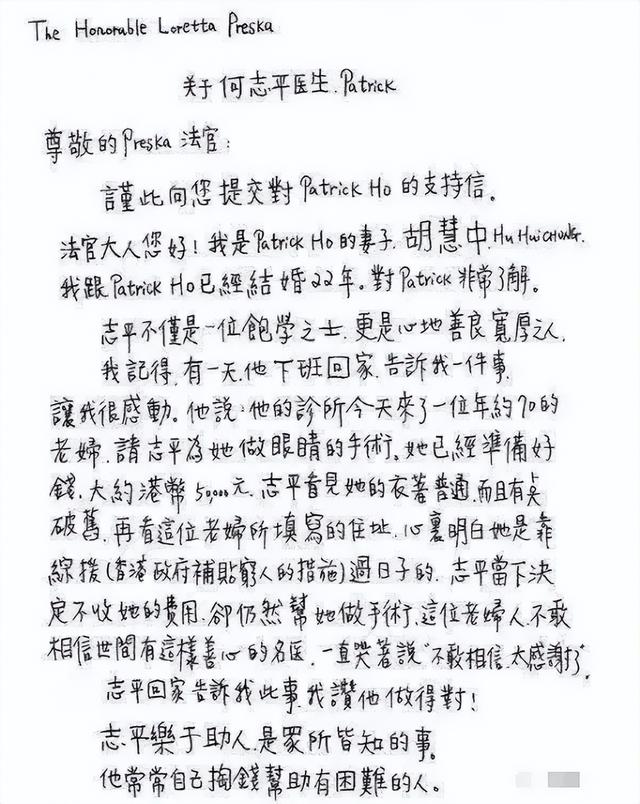 The Honorable Loretta Preska
关于何志平医生.Patrick
尊敬的Preska 法官:
謹此向您提交對 Patrick Ho 的支持信。
法官大人您好!我是Patrick Ho 的妻子.胡慧中.Hu HuiCHUNG.
我跟Patrick Ho已經結婚22年。對Patrick 非常了解。
志平不僅是一位飽學之士.更是心地善良寬厚之人.
我記得.有一天.他下班回家.告訴我一件事.
讓我很感動。他說:他的診所今天來了一位年約70的
老婦.請志平為她做眼睛的手術。她已經準備好
錢.大約港幣50,000元.志平看見她的衣著普通.而且有点
破舊.再看這位老婦所填寫的住址.心裏明白她是靠
綜援(香港政府補貼窮人的措施)過日子的.志平當下決
定不收她的費用.卻仍然幫她做手術.這位老婦人.不敢
相信世間有這樣善心的名医.一直哭著說"不敢相信.太感謝了".
志平回家告訴我此事.我讚他做得對!
志平樂于助人.是眾所皆知的事。
他常常自己掏錢幫助有困難的人。